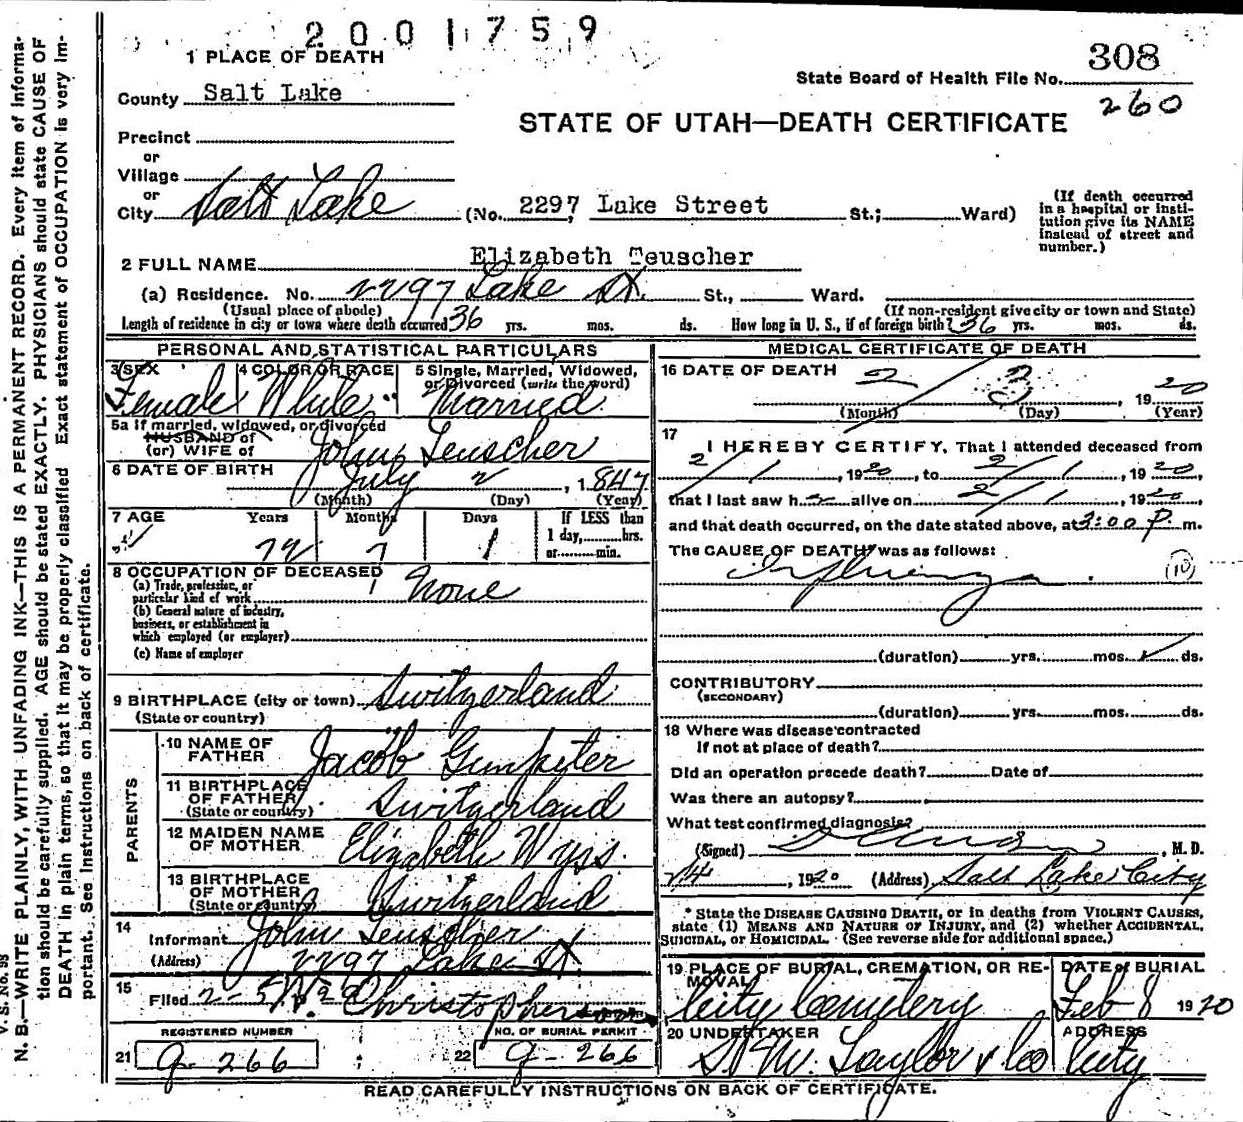 2001759
1 PLACE OF DEATH
308
State Board of Health File No.
260
County Salt Lake
STATE OF UTAH—DEATH CERTIFICATE
Precinct
or
Village
or
City Salt Lake (No. 2297 Lake Street St.; Ward)
(If death occurred in a hospital or institution give its NAME instead of street and number.)
2 FULL NAME Elizabeth Teuscher
(a) Residence. No. 2297 Lake St. St., Ward.
(Usual place of abode) (If non-resident give city or town and State)
Length of residence in city or town where death occurred 36 yrs. mos. ds. How long in U. S., if of foreign birth? 36 yrs. mos. ds.
PERSONAL AND STATISTICAL PARTICULARS
3 SEX 4 COLOR OR RACE 5 Single, Married, Widowed, or Divorced (write the word)
Female White Married
5a If married, widowed, or divorced
HUSBAND of
(or) WIFE of John Teuscher
6 DATE OF BIRTH July 2, 1847
(Month) (Day) (Year)
7 AGE Years Months Days If LESS than
1 day, hrs.
or min.
72 7 1
8 OCCUPATION OF DECEASED
(a) Trade, profession, or particular kind of work None
(b) General nature of industry, business, or establishment in which employed (or employer)
(c) Name of employer
9 BIRTHPLACE (city or town) Switzerland
(State or country)
PARENTS
10 NAME OF FATHER Jacob
11 BIRTHPLACE OF FATHER Switzerland
(State or country)
12 MAIDEN NAME OF MOTHER Elizabeth Wyss.
13 BIRTHPLACE OF MOTHER Switzerland
(State or country)
14
Informant John Teuscher
(Address) 2297 Lake St
15
Filed 2-5
REGISTERED NUMBER NO. OF BURIAL PERMIT
21 G-266 22 G-266
MEDICAL CERTIFICATE OF DEATH
16 DATE OF DEATH
2/3, 1920
(Month) (Day) (Year)
17
I HEREBY CERTIFY, That I attended deceased from
2/1, 1920, to 2/1, 1920,
that I last saw h alive on 2/1, 1920,
and that death occurred, on the date stated above, at 3:00 P. m.
The CAUSE OF DEATH* was as follows:
Influenza. (10)
(duration) yrs. mos. ds.
CONTRIBUTORY
(SECONDARY)
(duration) yrs. mos. ds.
18 Where was disease contracted
If not at place of death?
Did an operation precede death? Date of
Was there an autopsy?
What test confirmed diagnosis?
(Signed) , M. D.
2/4, 1920 (Address) Salt Lake City
* State the DISEASE CAUSING DEATH, or in deaths from VIOLENT CAUSES,
state (1) MEANS AND NATURE OF INJURY, and (2) whether ACCIDENTAL,
SUICIDAL, or HOMICIDAL. (See reverse side for additional space.)
19 PLACE OF BURIAL, CREMATION, OR REMOVAL DATE of BURIAL
City Cemetery Feb 8 1920
20 UNDERTAKER ADDRESS
S. M. Taylor & Co City
READ CAREFULLY INSTRUCTIONS ON BACK OF CERTIFICATE.
V. S. No. 98
N. B.—WRITE PLAINLY, WITH UNFADING INK—THIS IS A PERMANENT RECORD. Every item of informa-
tion should be carefully supplied. AGE should be stated EXACTLY. PHYSICIANS should state CAUSE OF
DEATH in plain terms, so that it may be properly classified. Exact statement of OCCUPATION is very im-
portant. See instructions on back of certificate.